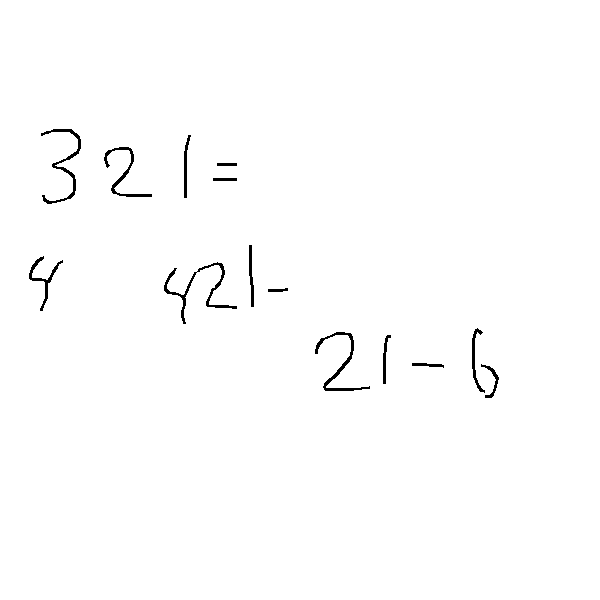 321=
4 421-
21-6